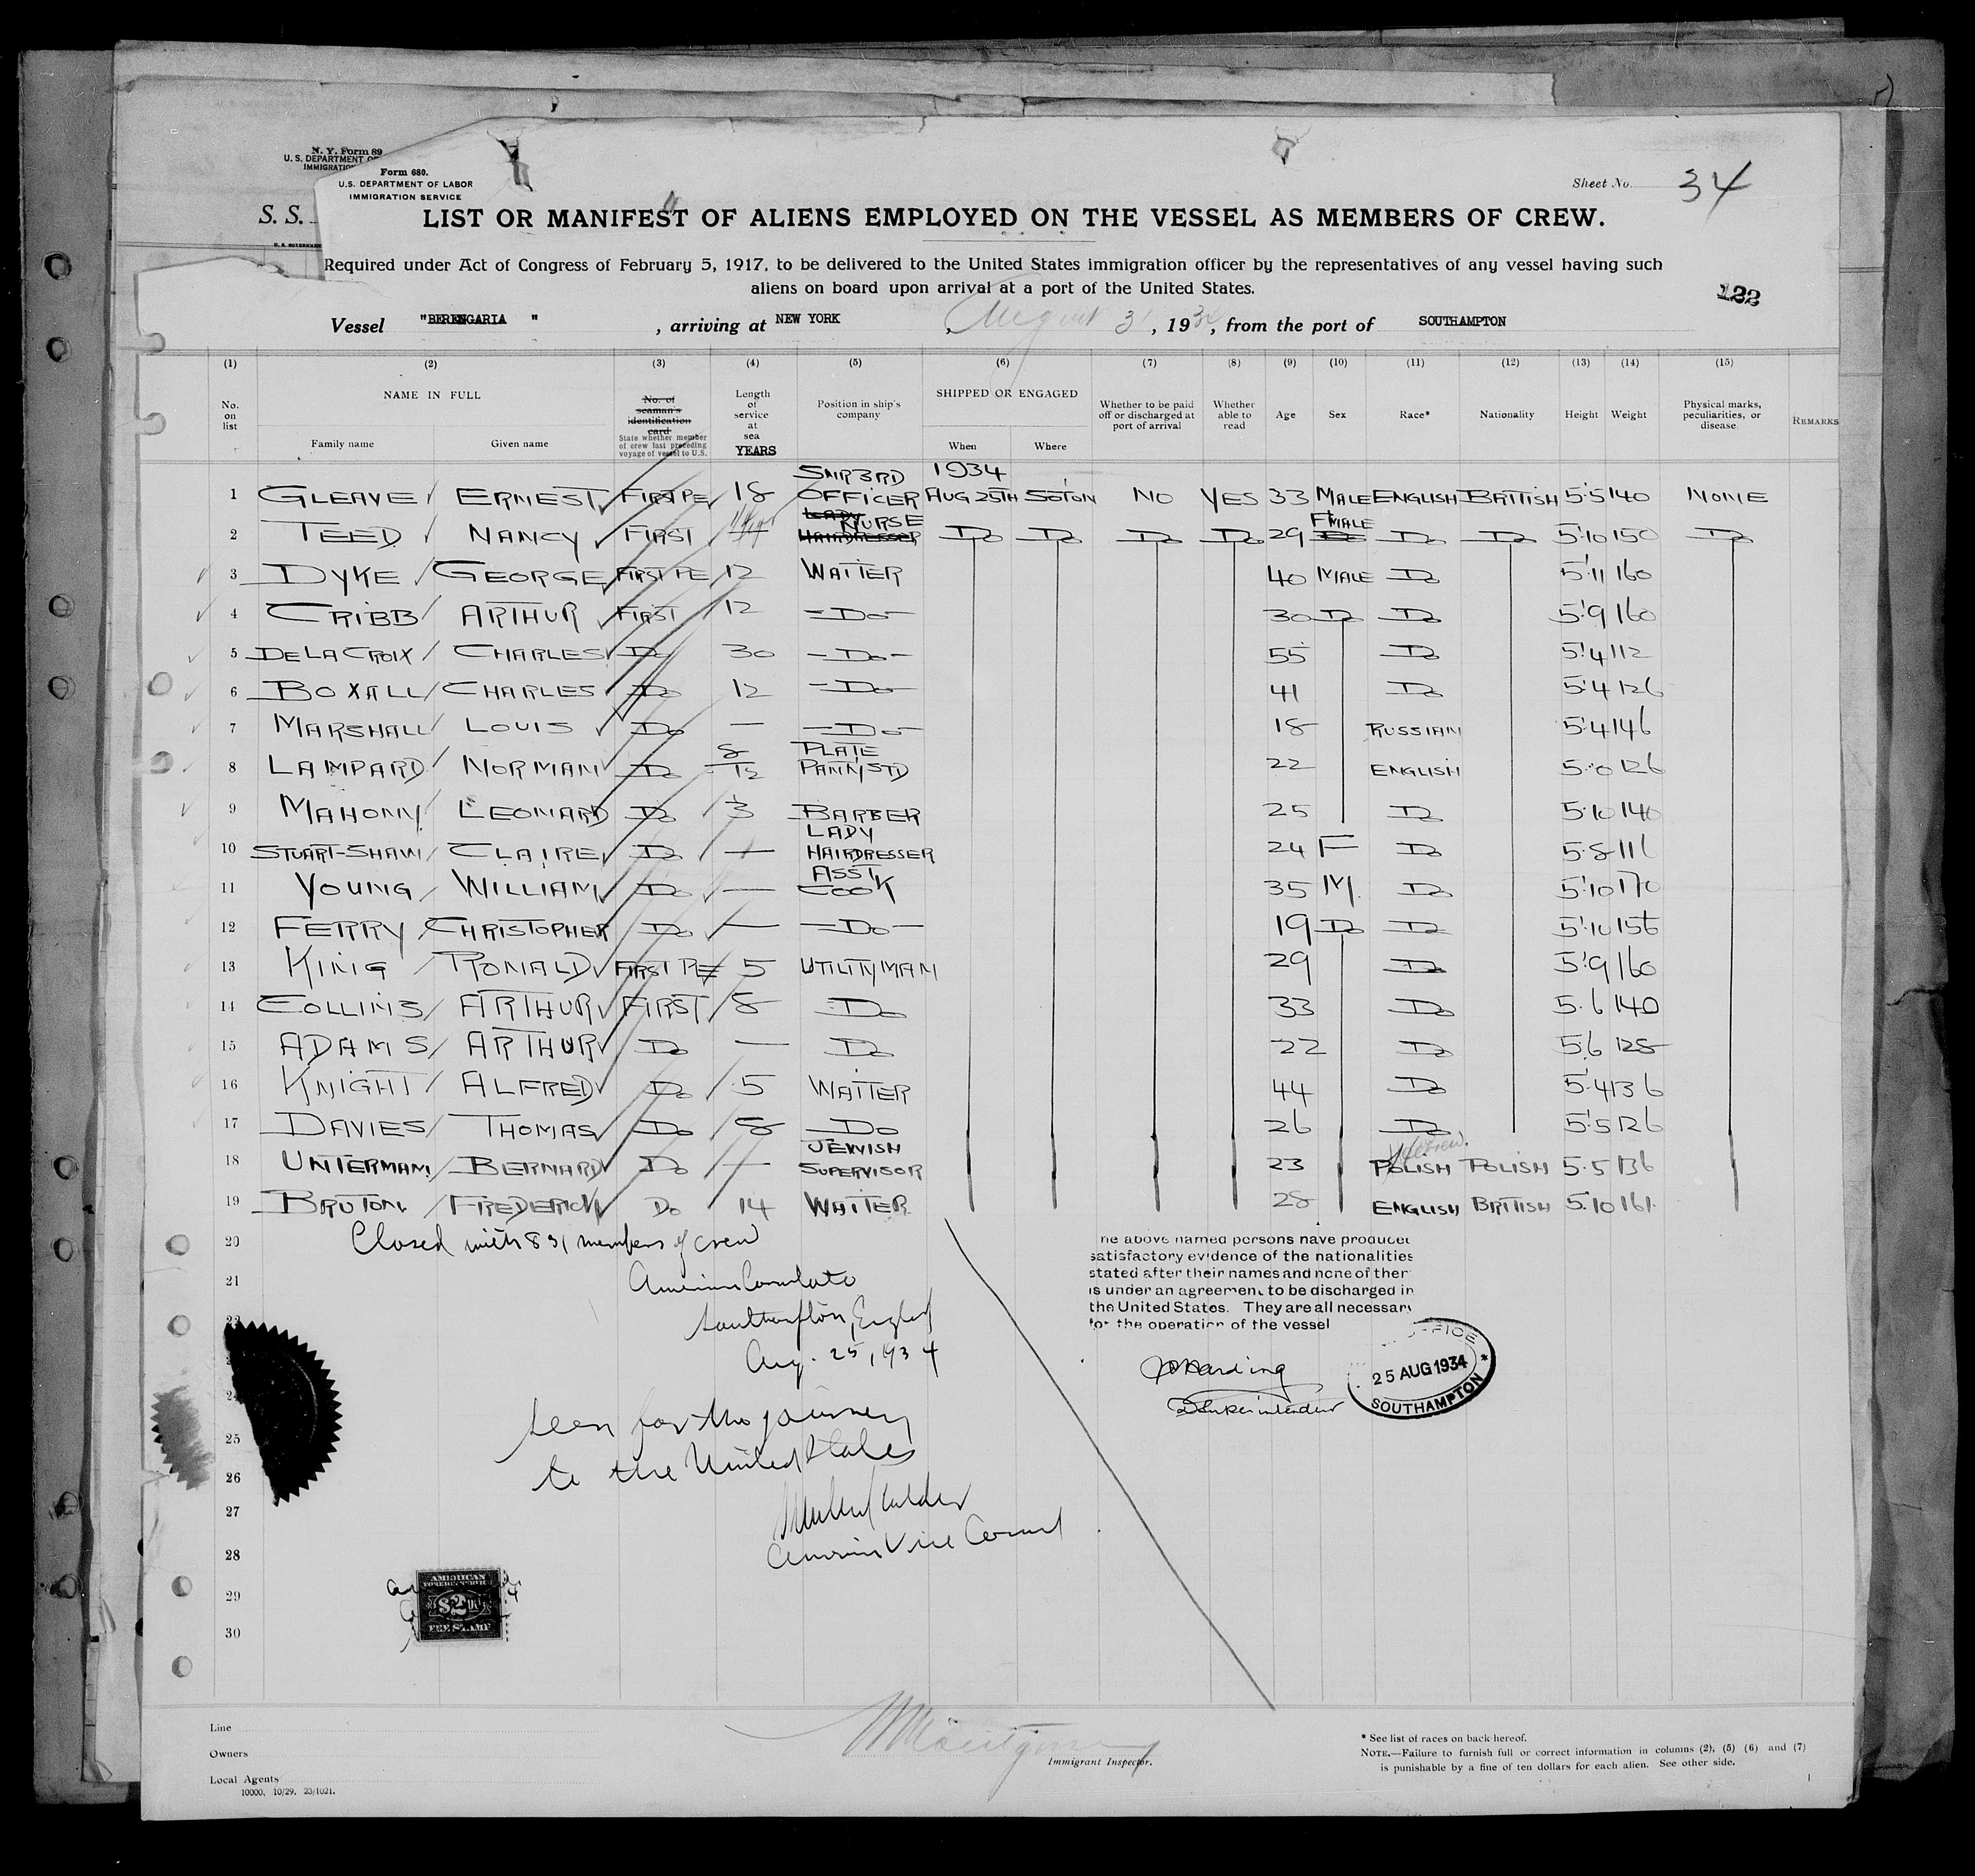 N. Y. Form 89
U. S. DEPARTMENT OF
IMMIGRATIO
S. S.
Form 680.
U.S. DEPARTMENT OF LABOR
IMMIGRATION SERVICE
Sheet No. 34
LIST OR MANIFEST OF ALIENS EMPLOYED ON THE VESSEL AS MEMBERS OF CREW.
Required under Act of Congress of February 5, 1917, to be delivered to the United States immigration officer by the representatives of any vessel having such
aliens on board upon arrival at a port of the United States.
122
Vessel "BERENGARIA ", arriving at NEW YORK, August 31, 1934, from the port of SOUTHAMPTON
(1) (2) (3) (4) (5) (6) (7) (8) (9) (10) (11) (12) (13) (14) (15)
No. on list NAME IN FULL Family name Given name No. of seaman's identification card State whether member of crew last preceding voyage of vessel to U.S. Length of service at sea YEARS Position in ship's company SHIPPED OR ENGAGED When Where Whether to be paid off or discharged at port of arrival Whether able to read Age Sex Race* Nationality Height Weight Physical marks, peculiarities, or disease REMARKS
1934
1 GLEAVE ERNEST FIRST PE 18 SNR 3RD OFFICER AUG 25TH SOTON NO YES 33 MALE ENGLISH BRITISH 5'5 140 NONE
2 TEED NANCY FIRST LADY HAIRDRESSER NURSE Do Do Do Do 29 Do FMALE Do Do 5'10 150 Do
3 DYKE GEORGE FIRST PE 12 WAITER 40 MALE Do 5'11 160
4 CRIBB ARTHUR FIRST 12 -Do- 30 Do Do 5'9 160
5 DE LA CROIX CHARLES Do 30 -Do- 55 Do 5'4 112
6 BOXALL CHARLES Do 12 -Do- 41 Do 5'4 126
7 MARSHALL LOUIS Do — -Do- 18 RUSSIAN 5'4 146
8 LAMPARD NORMAN Do 8/12 PLATE PANNYSTD 22 ENGLISH 5'0 126
9 MAHONY LEONARD Do 3 BARBER 25 Do 5'10 140
10 STUART-SHAW CLAIRE Do — LADY HAIRDRESSER 24 F Do 5'8 116
11 YOUNG WILLIAM Do — ASST COOK 35 M. Do 5'10 170
12 FERRY CHRISTOPHER Do — -Do- 19 Do Do 5'10 156
13 KING RONALD FIRST PE 5 UTILITYMAN 29 Do 5'9 160
14 COLLINS ARTHUR FIRST 8 Do 33 Do 5'6 140
15 ADAMS ARTHUR Do — Do 22 Do 5'6 128
16 KNIGHT ALFRED Do 5 WAITER 44 Do 5'4 136
17 DAVIES THOMAS Do 8 Do 26 Do 5'5 126
18 UNTERMAN BERNARD Do — JEWISH SUPERVISOR 23 Hebrew. POLISH POLISH 5'5 136
19 BRUTON FREDERICK Do 14 WAITER 28 ENGLISH BRITISH 5'10 161
20 Closed with 831 members of crew
21 American Consulate
22 Southampton, England
Aug. 25, 1934
The above named persons have produced
satisfactory evidence of the nationalities
stated after their names and none of them
is under an agreement to be discharged in
the United States. They are all necessary
for the operation of the vessel
Harding
Superintendent
OFFICE
25 AUG 1934
SOUTHAMPTON
25 Seen for the journey
26 to the United States
27
28 American Vice Consul
29
30
AMERICAN
FOREIGN SERVICE
$2
FEE STAMP
Line
Owners
Local Agents
10000, 10/29, 23/1021.
Immigrant Inspector.
* See list of races on back hereof.
NOTE.—Failure to furnish full or correct information in columns (2), (5) (6) and (7)
is punishable by a fine of ten dollars for each alien. See other side.